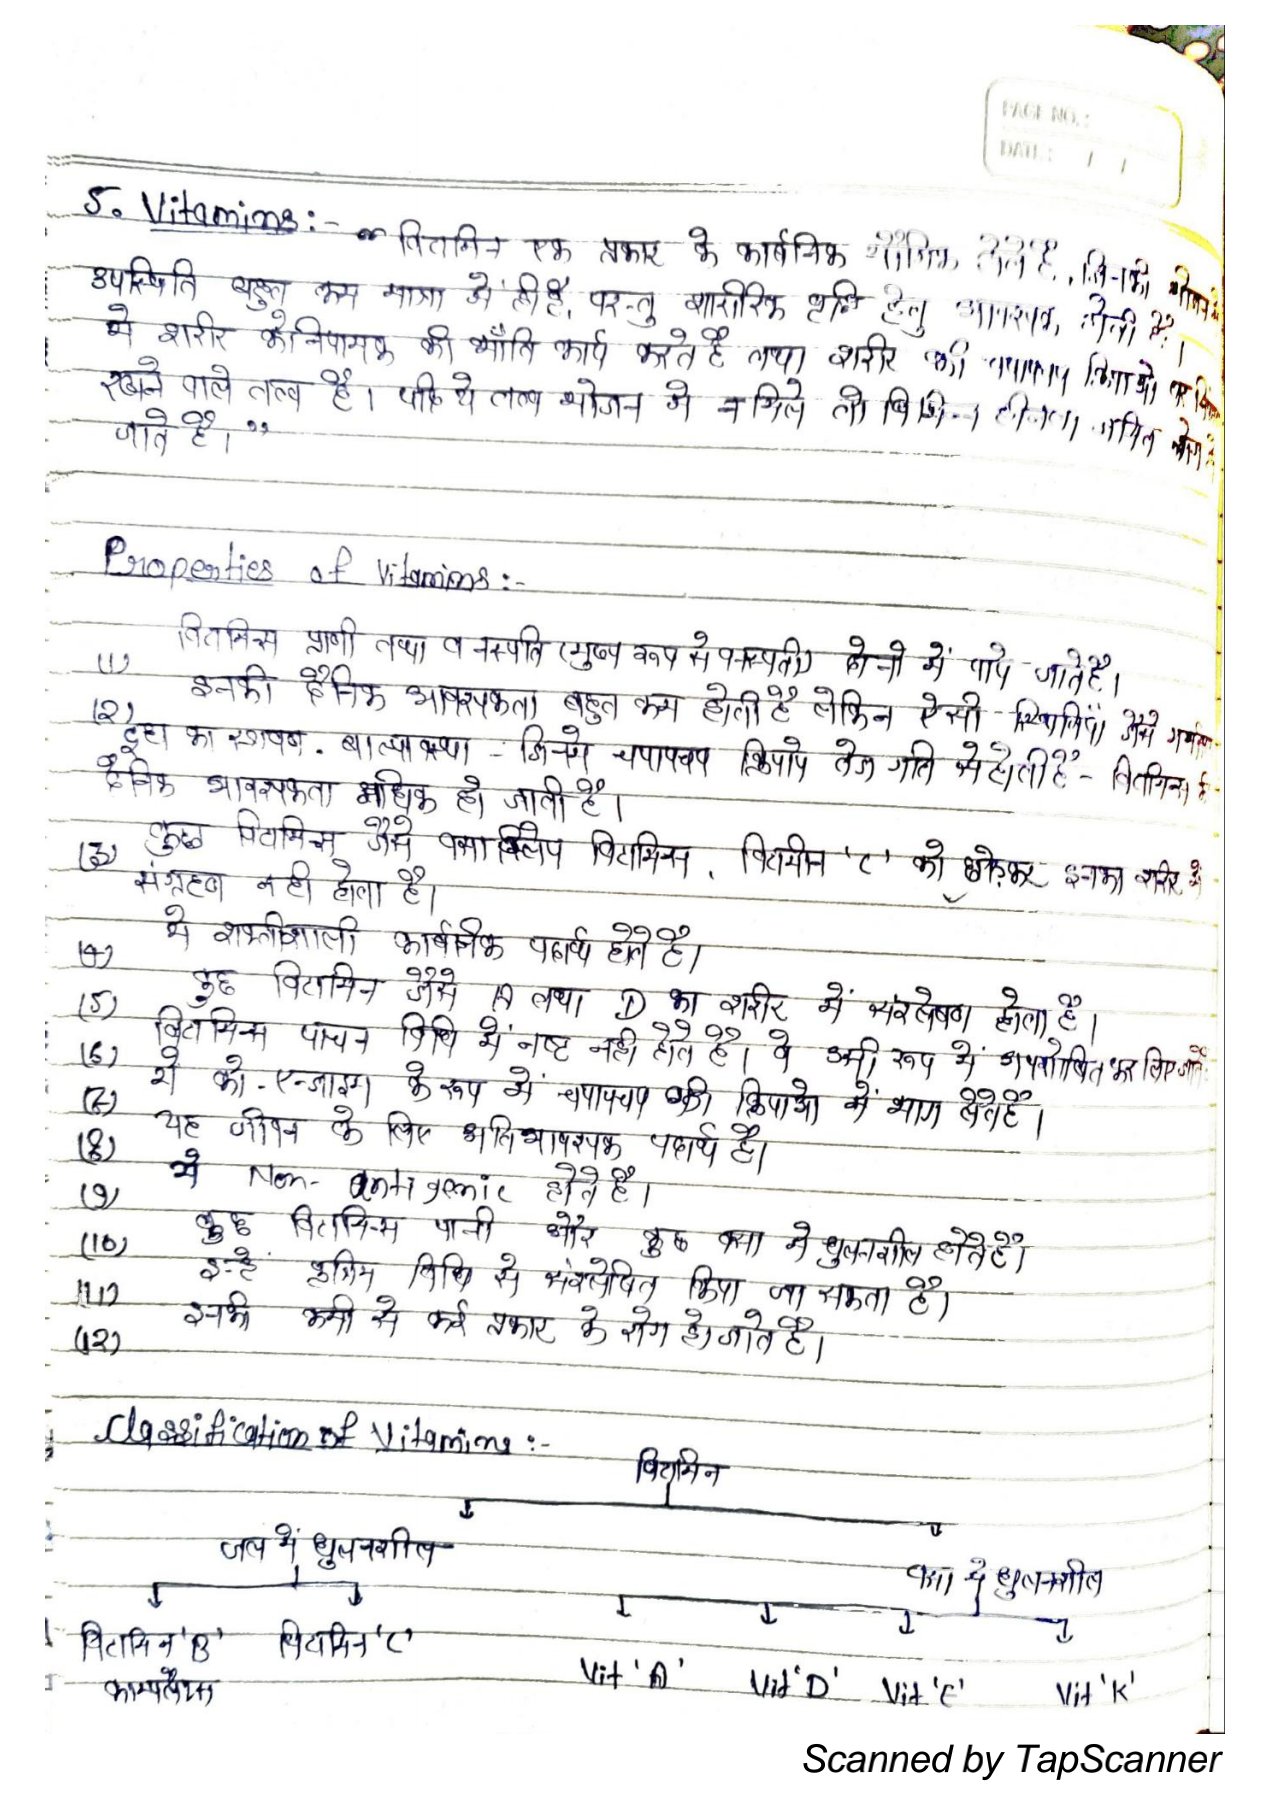 PAGE NO. :
DATE : / /
5. Vitamins :- विटामिन एक प्रकार के कार्बनिक यौगिक होते है, जिनकी भोजन में
उपस्थिति बहुत कम मात्रा में ही है, परन्तु शारीरिक वृद्धि हेतु आवश्यक होती है।
ये शरीर के नियामक की भाँति कार्य करते है तथा शरीर की चयापचय क्रियाओ पर
रखने वाले तत्व है। यदि ये तत्व भोजन में न मिले तो विभिन्न हीनता जनित रोग हो
जाते है।”
Properties of Vitamins :-
(1) विटामिन्स प्राणी तथा वनस्पति (मुख्य रूप से वनस्पती) दोनो में पाये जाते है।
(2) इनकी दैनिक आवश्यकता बहुत कम होती है लेकिन ऐसी स्थितियाँ जैसे
का स्त्रावण, बाल्यावस्था - जिनमे चयापचय क्रियाये तेज गति से होती है - विटामिन्स की
दैनिक आवश्यकता अधिक हो जाती है।
(3) कुछ विटामिन्स जैसे वसा विलेय विटामिन्स, विटामीन 'C' को छोड़कर इनका शरीर में
संग्रहण नही होता है।
(4) ये शक्तीशाली कार्बनिक पदार्थ होते है।
(5) कुछ विटामिन जैसे A तथा D का शरीर में संश्लेषण होता है।
(6) विटामिन्स पाचन विधि में नष्ट नही होते है। वे उसी रूप में अवशोषित कर लिए जाते
(7) ये को-एन्जाइम के रूप में चयापचय की क्रियाओ में भाग लेते है।
(8) यह जीवन के लिए अतिआवश्यक पदार्थ है।
(9) ये Non-antigenic होते है।
(10) कुछ विटामिन्स पानी और कुछ वसा मे घुलनशील होते है।
(11) इन्हे कृत्रिम विधि से संश्लेषित किया जा सकता है।
(12) इनकी कमी से कई प्रकार के रोग हो जाते है।
Classification of Vitamins :-
विटामिन
जल में घुलनशील
वसा में घुलनशील
विटामिन 'B' विटामिन 'C'
काम्पलैक्स
Vit 'A' Vit 'D' Vit 'E' Vit 'K'
Scanned by TapScanner